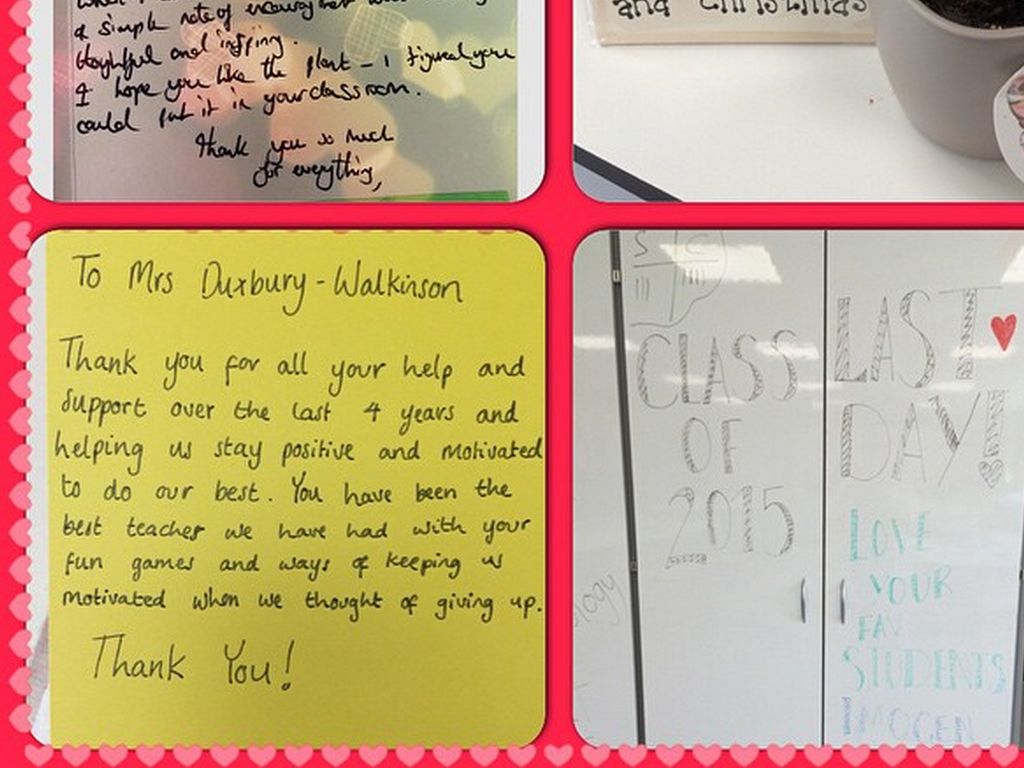 a simple note of encouragement
thoughtful and inspiring.
I hope you like the plant - I figured you
could put it in your classroom.
Thank you so much
for everything,
and Christmas
To Mrs Duxbury-Walkinson
Thank you for all your help and
support over the last 4 years and
helping us stay positive and motivated
to do our best. You have been the
best teacher we have had with your
fun games and ways of keeping us
motivated when we thought of giving up.
Thank You!
S C
CLASS
OF
2015
LAST
DAY!
LOVE
YOUR
FAV
STUDENTS
IMOGEN